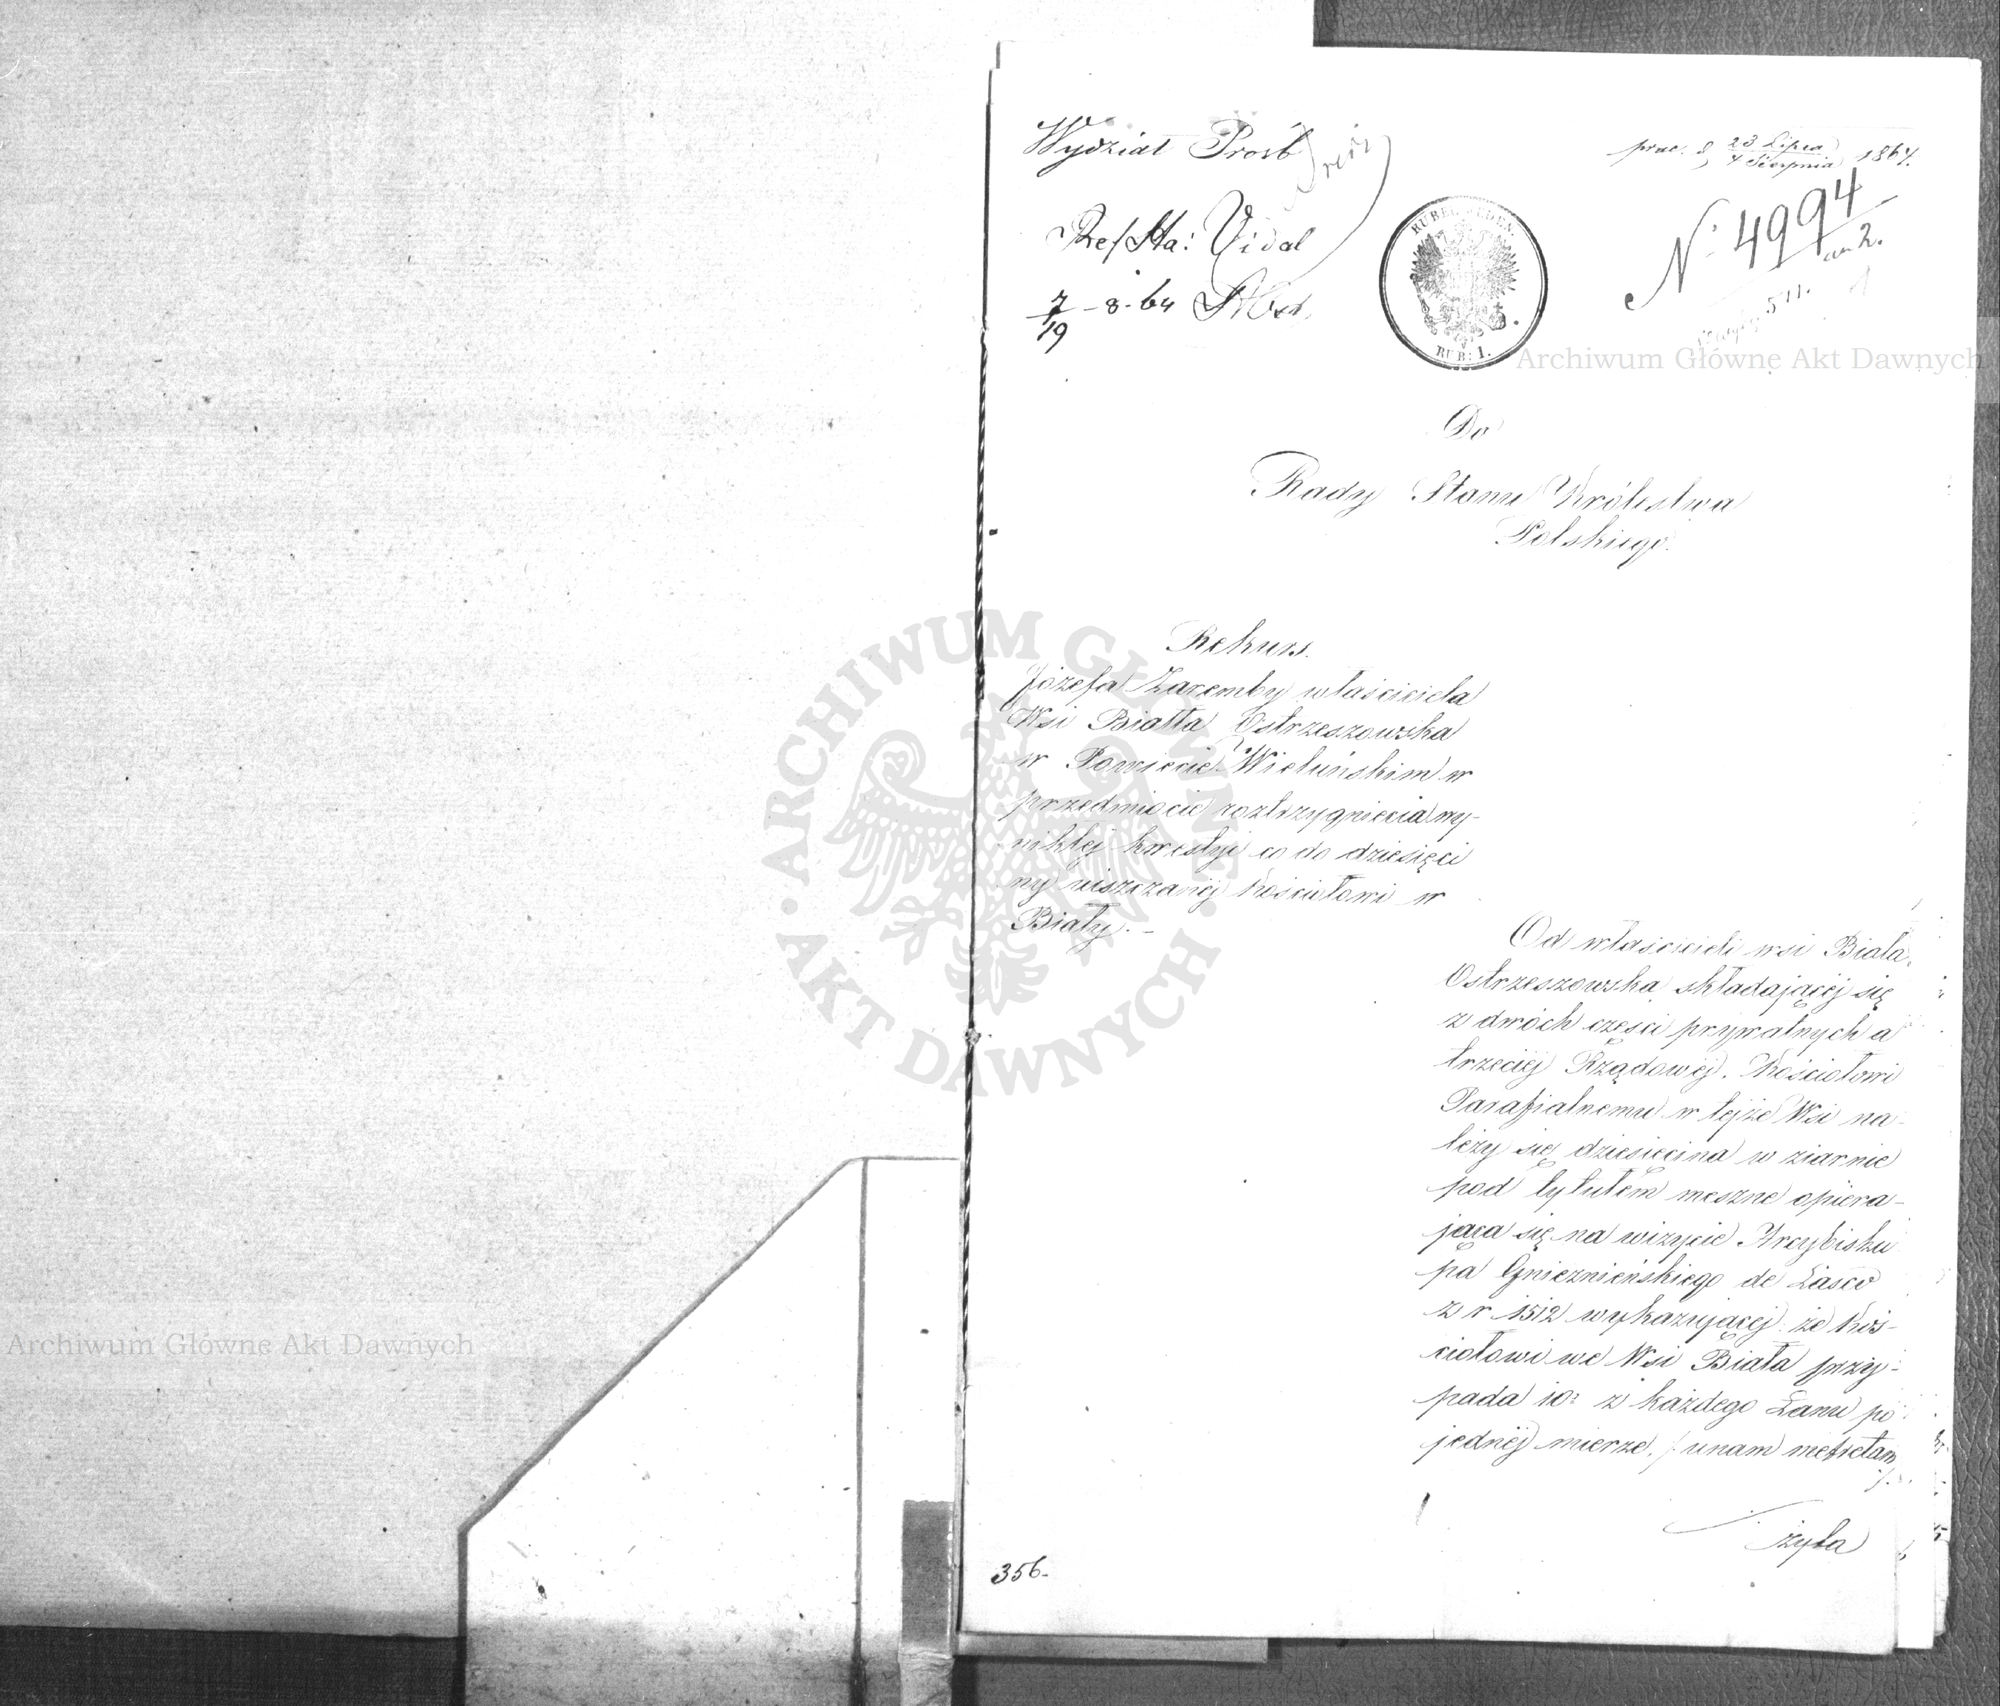 Wydział Prośb
Ref Sta: Vidal
7/19 - 8 - 64
prae. d. 23 Lipca / 4 Sierpnia 1864.
N: 4994
an 2.
511.
RUBEL JEDEN.
RUB: 1.
Archiwum Główne Akt Dawnych
Do
Rady Stanu Królestwa
Polskiego.
Rekurs.
Józefa Zaremby właściciela
Wsi Biała Ostrzeszowska
w Powiecie Wieluńskim w
przedmiocie roztrzygnięcia wy-
nikłej kwestyi co do dziesięci
ny uiszczanéj Kościołowi w
Biały. -
Od właścicieli wsi Biała
Ostrzeszowska składającéj się
z dwóch części prywatnych a
trzeciéj Rządowéj, Kościołowi
Parafialnemu w tejże Wsi na-
leży się dziesięcina w ziarnie
pod tytułem meszne opiera-
jąca się na wizycie Arcybisku
pa Gnieznieńskiego de Lasco
z r 1512 wykazującéj że Koś-
ciołowi we Wsi Biała przy-
pada io: z każdego Łanu po
jednéj mierze, /: unam metretam
:/.
żyta
356.
ARCHIWUM GŁÓWNE · AKT DAWNYCH ·
Archiwum Główne Akt Dawnych